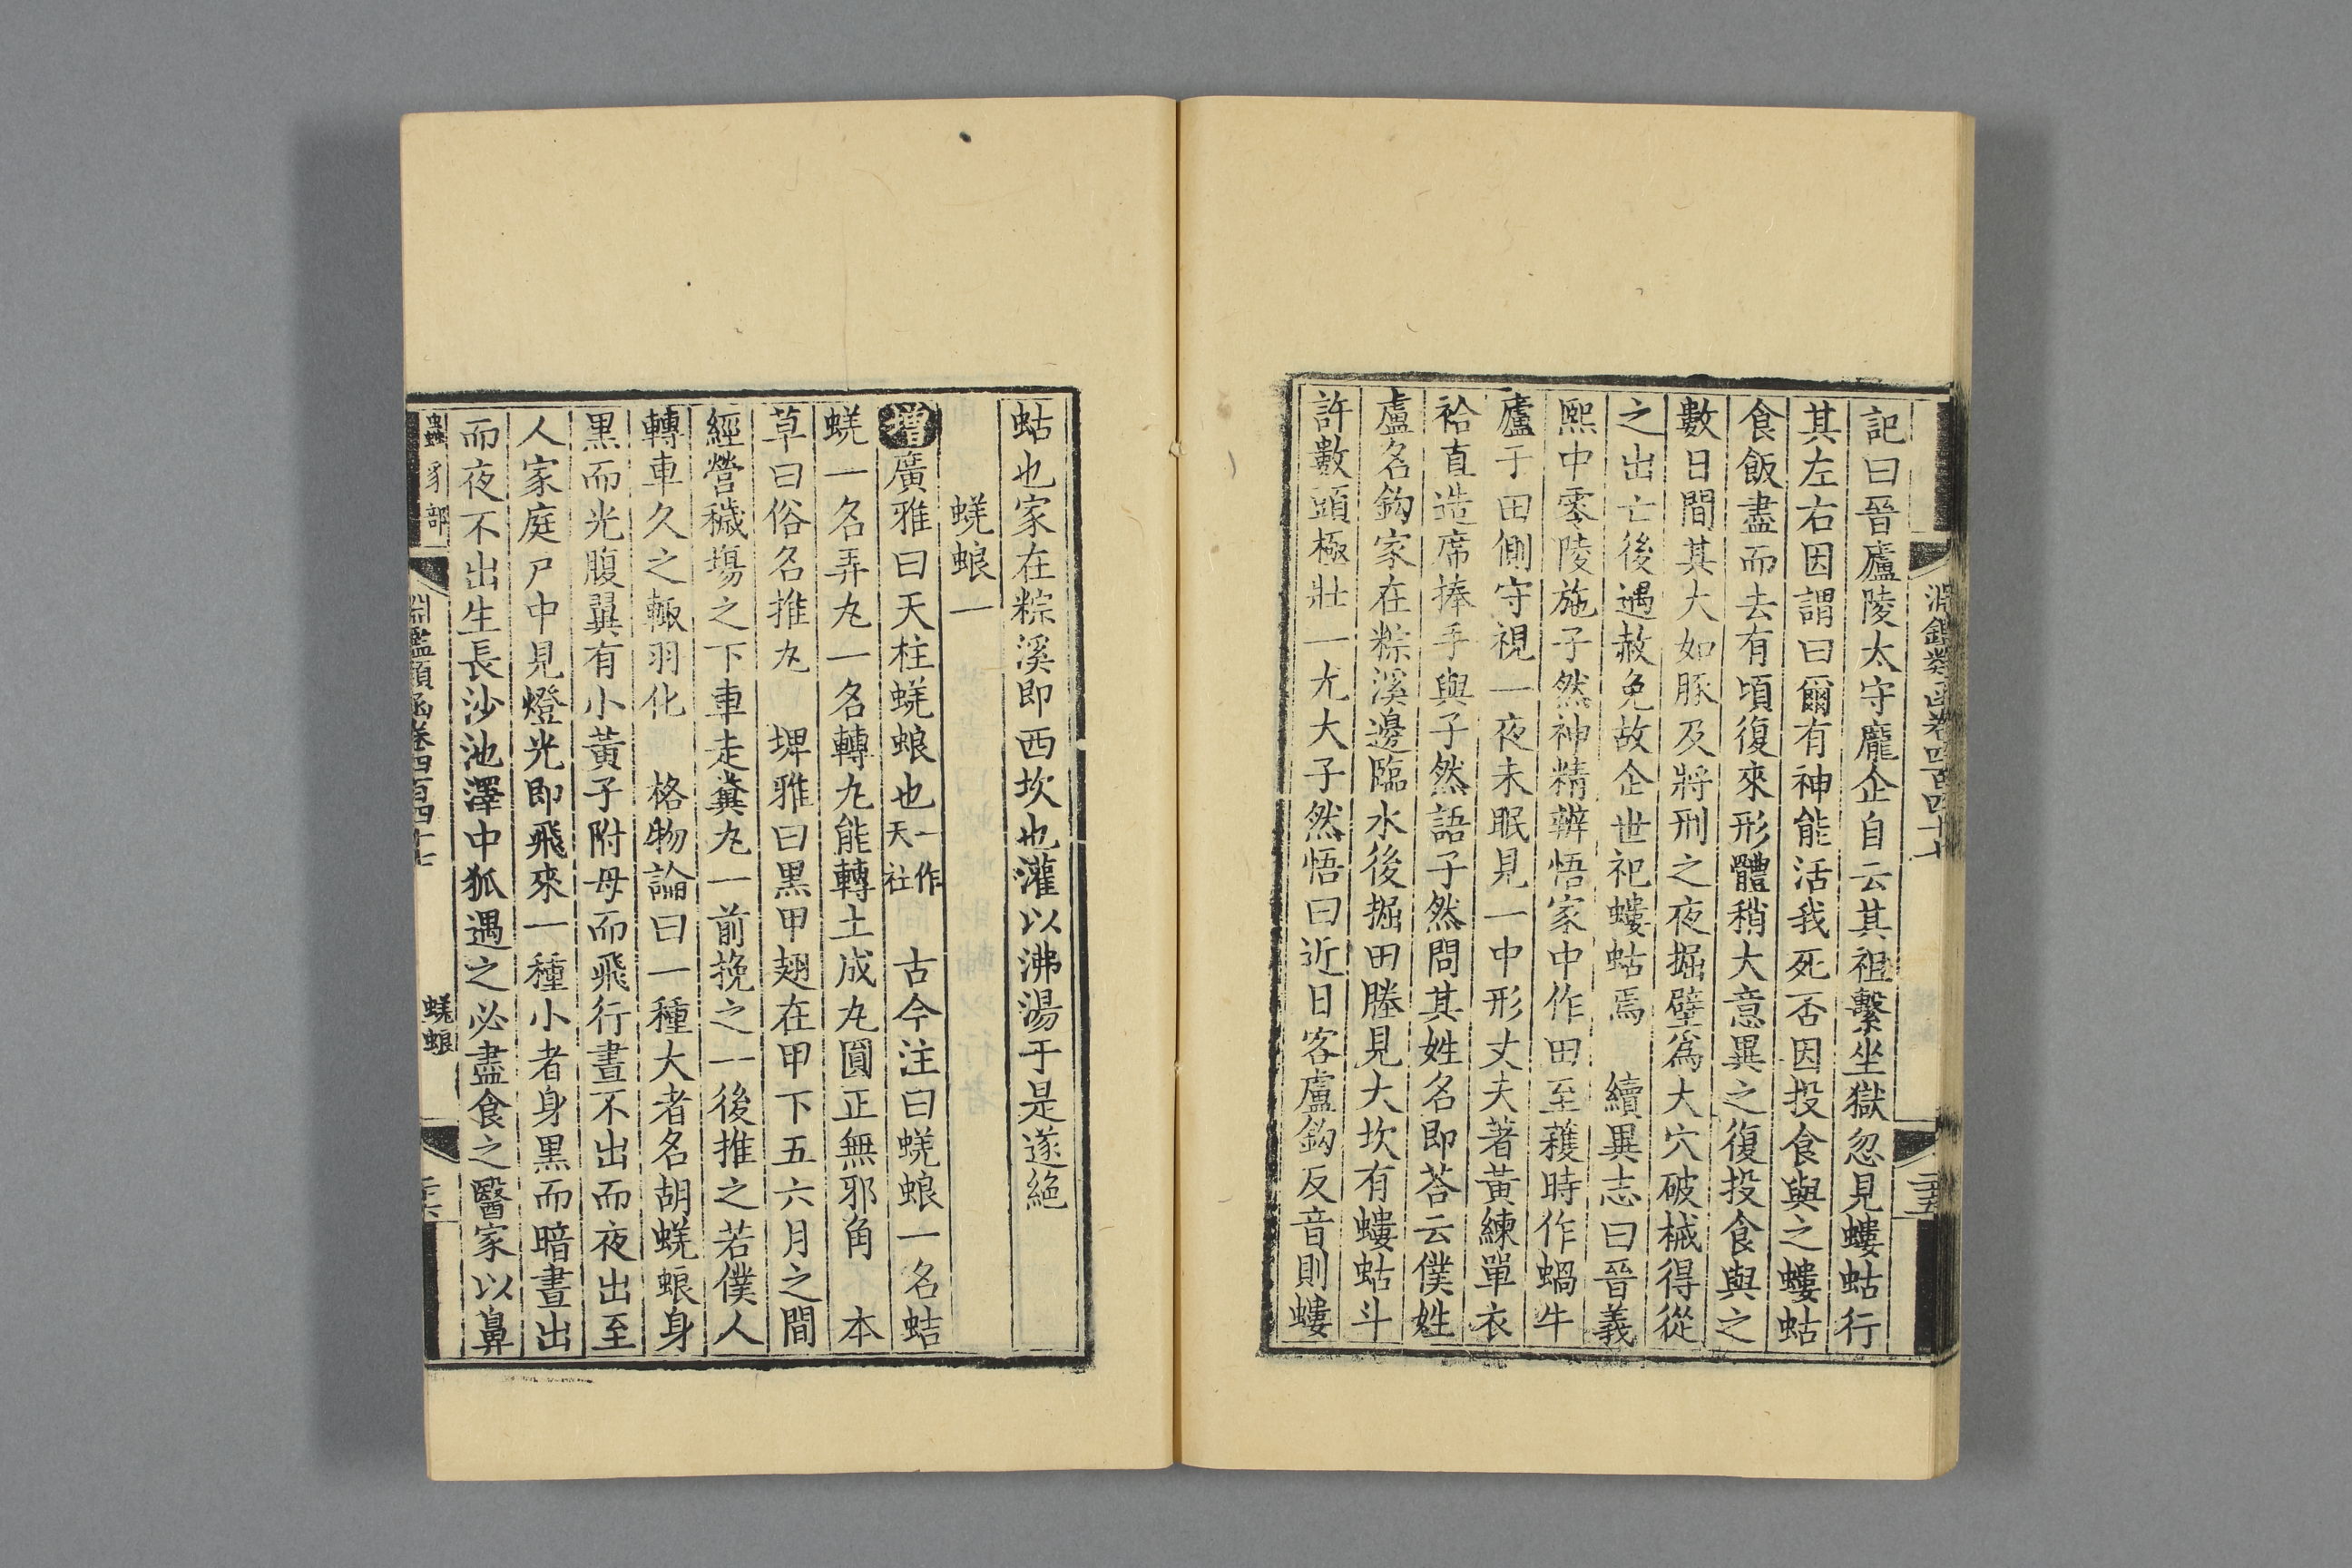 淵鑑類函卷四百四十七
二十五
記曰晉廬陵太守龐企自云其祖繫坐獄忽見螻蛄行
其左右因謂曰爾有神能活我死否因投食與之螻蛄
食飯盡而去有頃復來形體稍大意異之復投食與之
數日間其大如豚及將刑之夜掘壁為大穴破械得從
之出亡後遇赦免故企世祀螻蛄焉 續異志曰晉義
熙中零陵施子然神精辧悟家中作田至穫時作蝸牛
廬于田側守視一夜未眠見一中形丈夫著黃練單衣
袷直造席捧手與子然語子然問其姓名即荅云僕姓
盧名鈎家在粽溪邊臨水後掘田塍見大坎有螻蛄斗
許數頭極壯一尤大子然悟曰近日客盧鈎反音則螻
蛄也家在粽溪即西坎也灌以沸湯于是遂絕
蜣蜋一
增廣雅曰天柱蜣蜋也一作天社 古今注曰蜣蜋一名蛣
蜣一名弄丸一名轉丸能轉土成丸圓正無邪角 本
草曰俗名推丸 埤雅曰黑甲翅在甲下五六月之間
經營穢塲之下車走糞丸一前挽之一後推之若僕人
轉車久之輙羽化 格物論曰一種大者名胡蜣蜋身
黑而光腹翼有小黃子附母而飛行晝不出而夜出至
人家庭戶中見燈光即飛來一種小者身黑而暗晝出
而夜不出生長沙池澤中狐遇之必盡食之醫家以鼻
蟲豸部
淵鑑類函卷四百四十七
蜣蜋
二十六